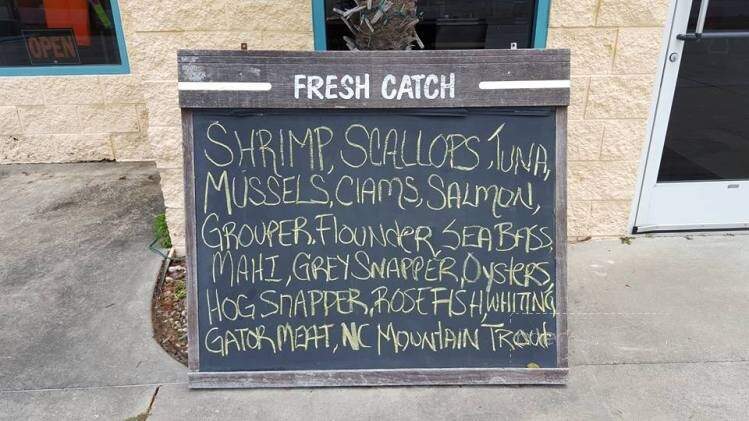 OPEN
FRESH CATCH
SHRIMP, SCALLOPS, TUNA,
MUSSELS, CLAMS, SALMON,
GROUPER, FLOUNDER, SEA BASS,
MAHI, GREY SNAPPER, OYSTERS,
HOG SNAPPER, ROSE FISH, WHITING
GATOR MEAT, NC MOUNTAIN TROUT